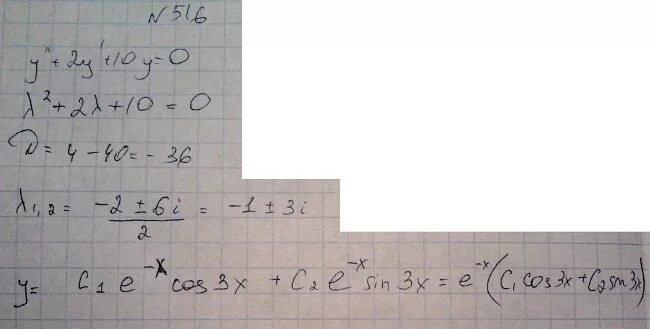 №516
y'' + 2y' + 10y = 0
λ² + 2λ + 10 = 0
D = 4 - 40 = - 36
λ₁,₂ = (-2 ± 6i)/2 = -1 ± 3i
y = C₁ e^(-x) cos 3x + C₂ e^(-x) sin 3x = e^(-x) (C₁ cos 3x + C₂ sin 3x)